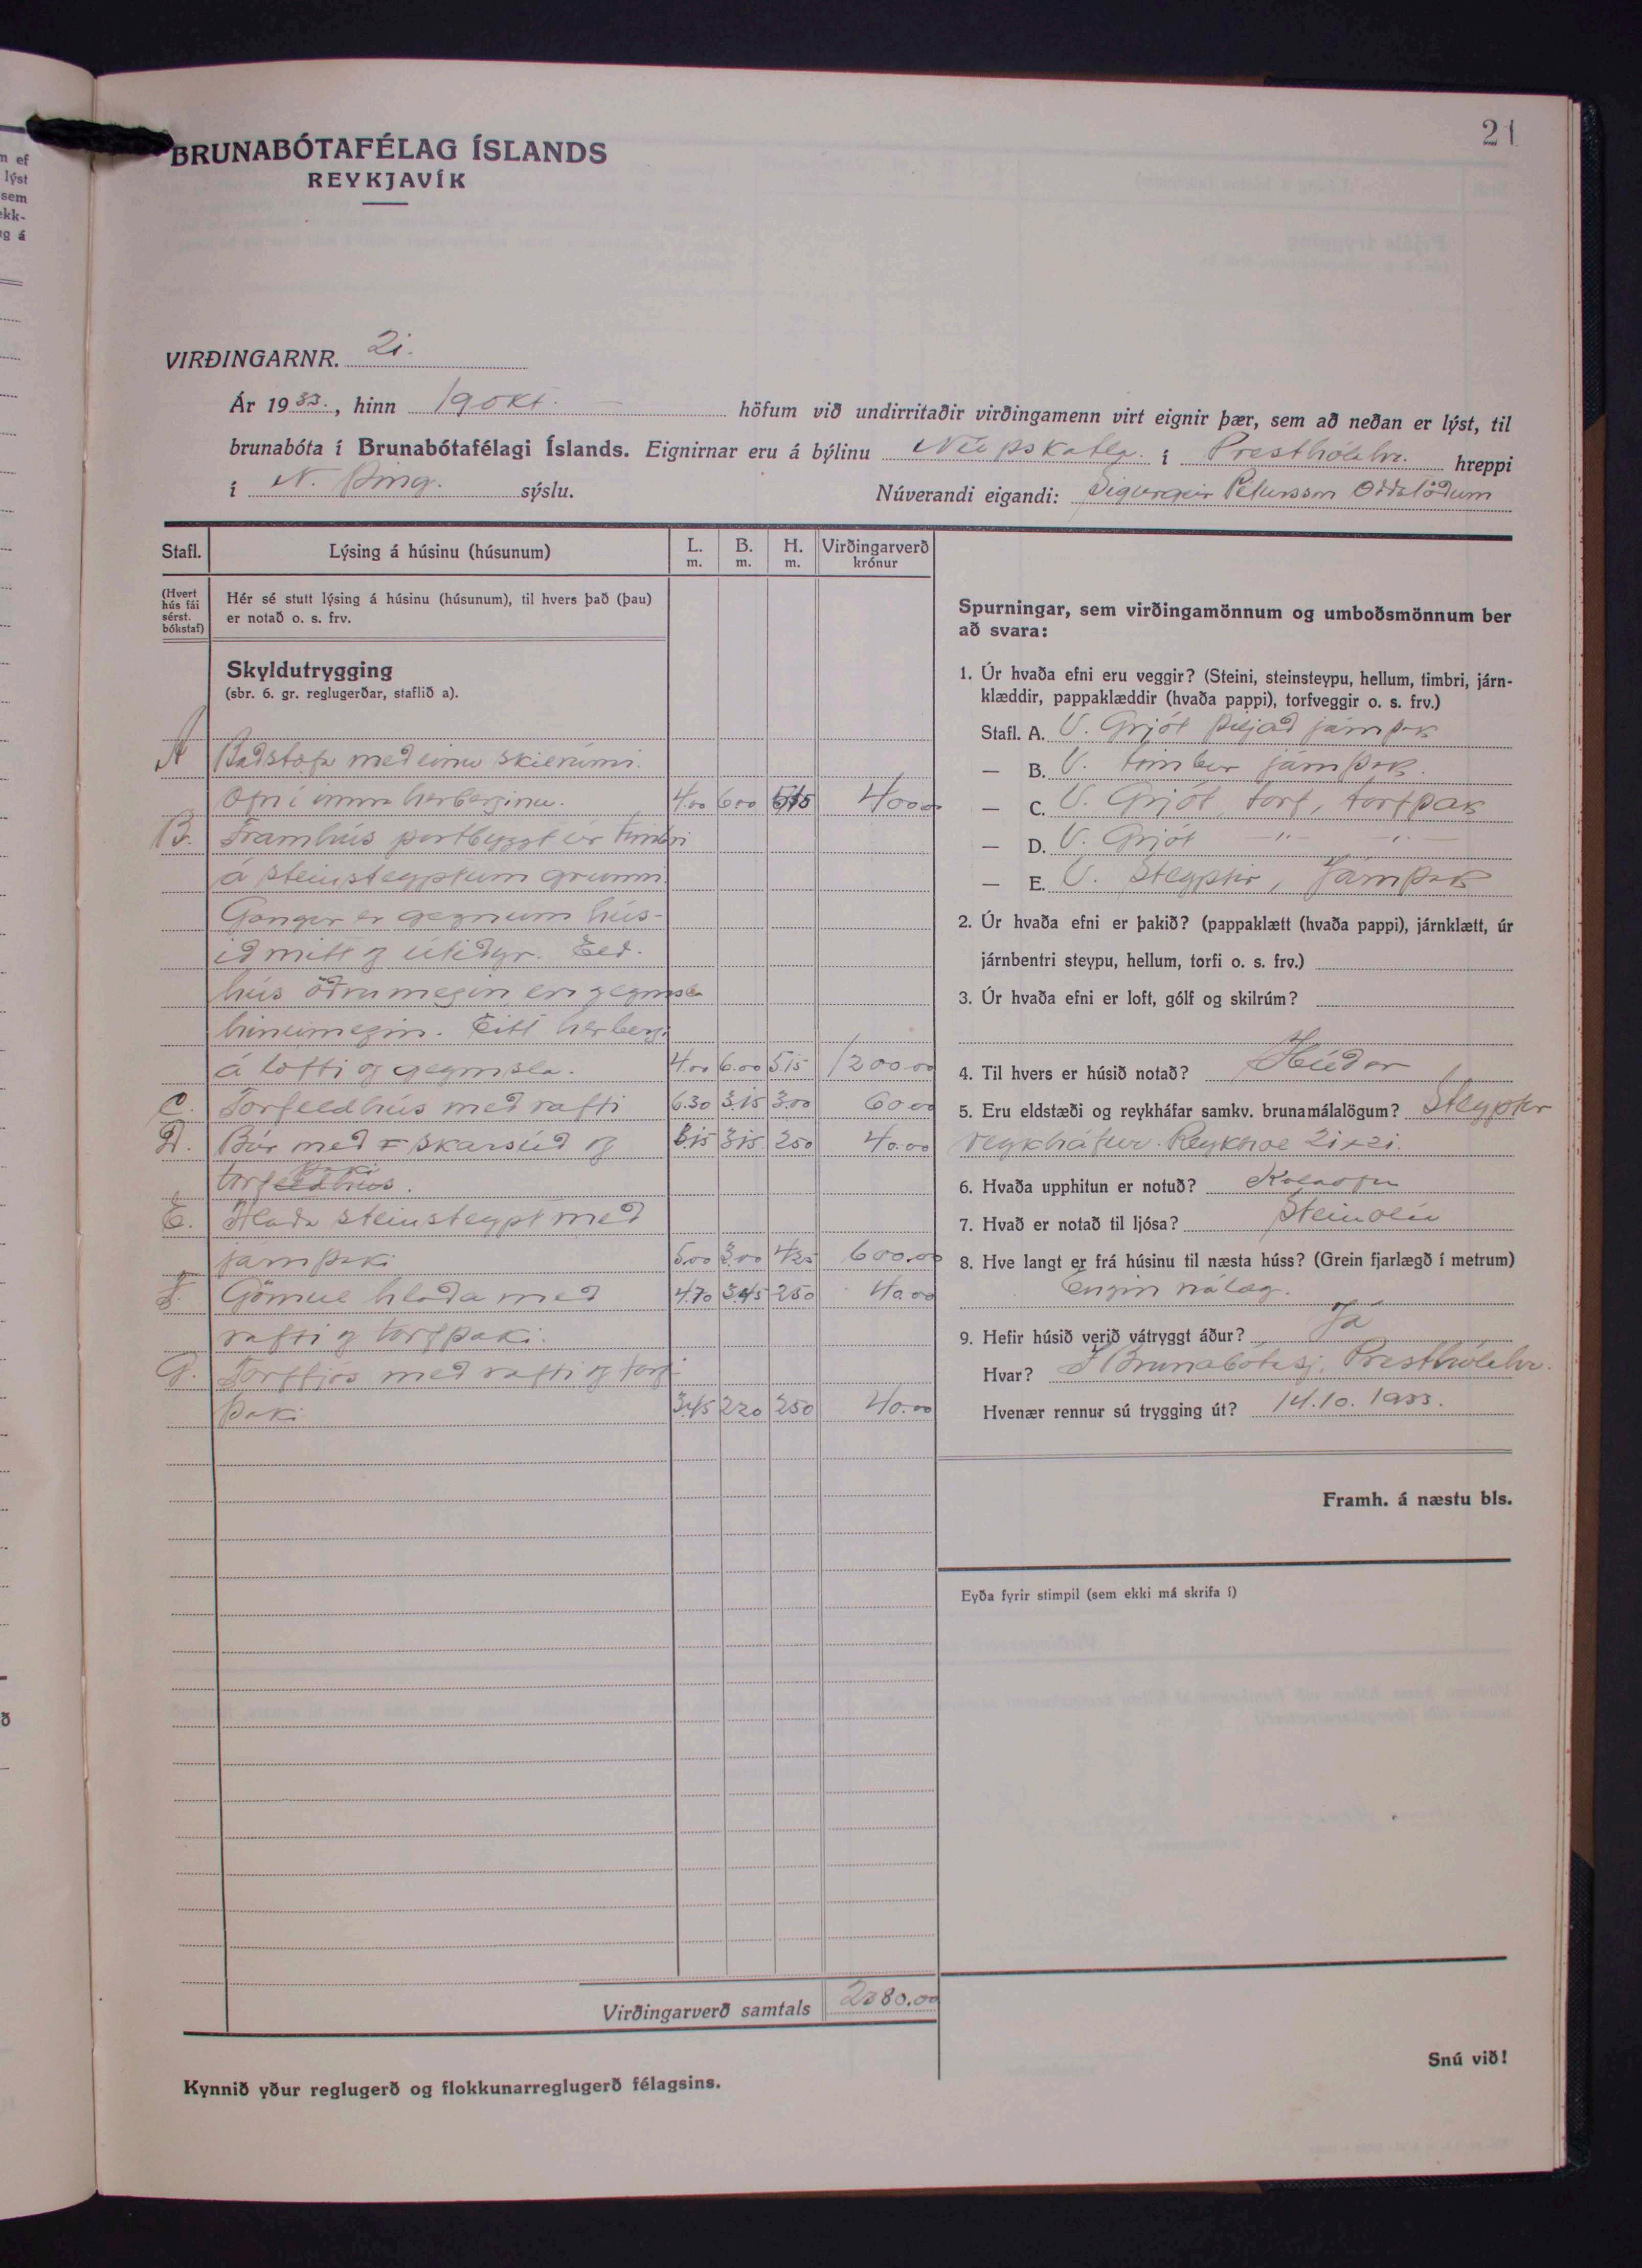 21
BRUNABÓTAFÉLAG ÍSLANDS
REYKJAVÍK
VIRÐINGARNR. 21.
Ár 1933., hinn 19 okt. höfum við undirritaðir virðingamenn virt eignir þær, sem að neðan er lýst, til
brunabóta í Brunabótafélagi Íslands. Eignirnar eru á býlinu Núpskatla. í Presthólahr. hreppi
í N. Þing. sýslu. Núverandi eigandi: Sigurgeir Pétursson Oddstöðum
Stafl. Lýsing á húsinu (húsunum) L. m. B. m. H. m. Virðingarverð krónur
(Hvert hús fái sérst. bókstaf)
Hér sé stutt lýsing á húsinu (húsunum), til hvers það (þau)
er notað o. s. frv.
Skyldutrygging
(sbr. 6. gr. reglugerðar, staflið a).
A Baðstofa með einu skilrúmi.
Ofn í innra herberginu. 4.00 6.00 5.15 400.00
B. Framhús portbyggt úr timbri
á steinsteyptum grunni.
Gangur er gegnum hús-
ið mitt og útidyr. Eld-
hús öðrumegin en geymsla
hinumegin. Eitt herbergi
á lofti og geymsla. 4.00 6.00 5.15 1200.00
C. Torfeldhús með rafti 6.30 3.15 3.00 60.00
D. Búr með skarsúð og 3.15 3.15 250 40.00
torfþaki.
E. Hlaða steinsteypt með
járnþaki 5.00 3.00 4.20 600.00
F. Gömul hlaða með 4.70 3.45 250 40.00
rafti og torfþaki.
G. Torffjós með rafti og torf-
þaki 3.45 220 250 40.00
Virðingarverð samtals 2380.00
Kynnið yður reglugerð og flokkunarreglugerð félagsins.
Spurningar, sem virðingamönnum og umboðsmönnum ber
að svara:
1. Úr hvaða efni eru veggir? (Steini, steinsteypu, hellum, timbri, járn-
klæddir, pappaklæddir (hvaða pappi), torfveggir o. s. frv.)
Stafl. A. V. Grjót þiljað járnþak
— B. V. timbur járnþak.
— C. V. Grjót, torf, torfþak
— D. V. Grjót —"— —"—
— E. V. Steyptir, Járnþak
2. Úr hvaða efni er þakið? (pappaklætt (hvaða pappi), járnklætt, úr
járnbentri steypu, hellum, torfi o. s. frv.)
3. Úr hvaða efni er loft, gólf og skilrúm?
4. Til hvers er húsið notað? Íbúðar
5. Eru eldstæði og reykháfar samkv. brunamálalögum? Steyptur
reykháfur. Reykhol 21x21.
6. Hvaða upphitun er notuð? Kolaofn
7. Hvað er notað til ljósa? Steinolía
8. Hve langt er frá húsinu til næsta húss? (Grein fjarlægð í metrum)
Engin nálæg.
9. Hefir húsið verið vátryggt áður? Já
Hvar? Í Brunabótasj. Presthólahr.
Hvenær rennur sú trygging út? 14.10. 1933.
Framh. á næstu bls.
Eyða fyrir stimpil (sem ekki má skrifa í)
Snú við!